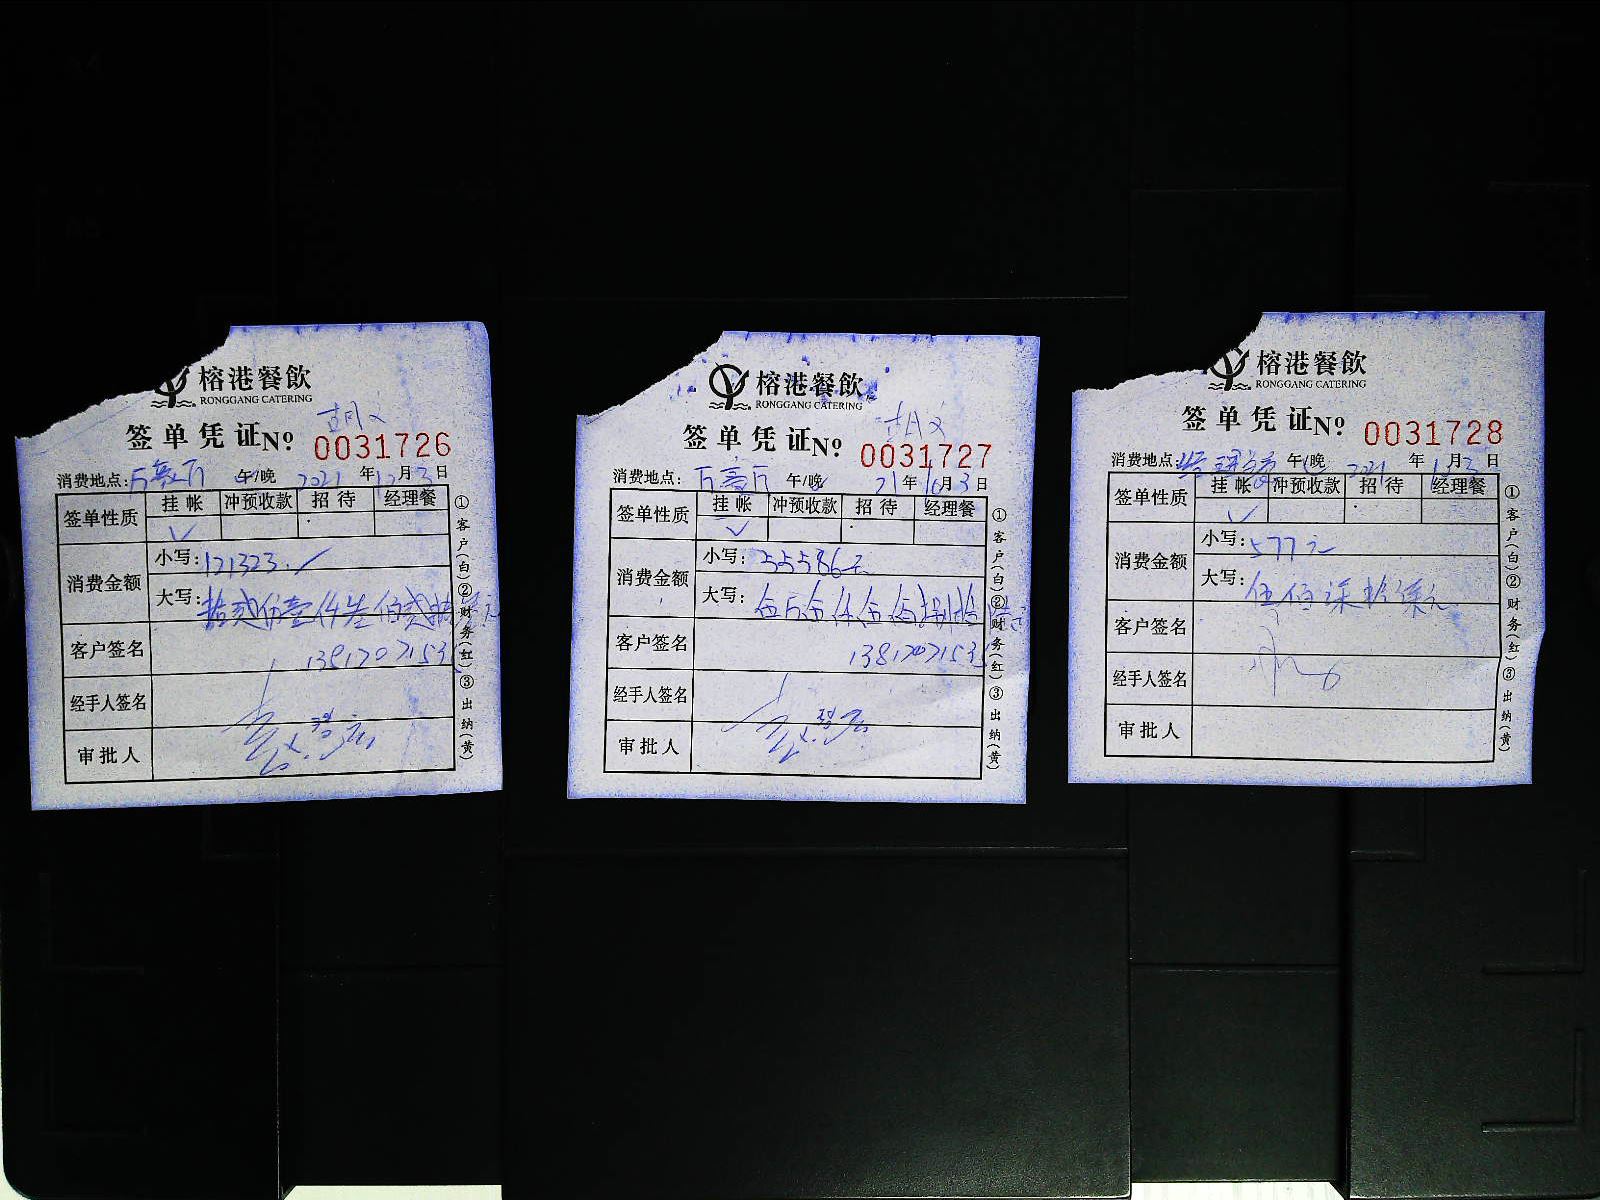 榕港餐飲
RONGGANG CATERING
胡文
签单凭证№ 0031726
消费地点:万豪厅 午/晚 2021年12月3日
签单性质 挂帐 冲预收款 招待 经理餐
✓
消费金额 小写:121323.
大写:拾贰万壹仟叁佰贰拾
客户签名 1381707153
经手人签名
审批人
①客户(白)②财务(红)③出纳(黄)
榕港餐飲
RONGGANG CATERING
胡文
签单凭证№ 0031727
消费地点:万豪厅 午/晚 21年 月3日
签单性质 挂帐 冲预收款 招待 经理餐
✓
消费金额 小写:55586元
大写:伍万伍仟伍佰捌拾陆元
客户签名 1381707153
经手人签名
审批人
①客户(白)②财务(红)③出纳(黄)
榕港餐飲
RONGGANG CATERING
签单凭证№ 0031728
消费地点: 午/晚 2021年 月3日
签单性质 挂帐 冲预收款 招待 经理餐
✓
消费金额 小写:577元
大写:伍佰柒拾柒元
客户签名
经手人签名
审批人
①客户(白)②财务(红)③出纳(黄)